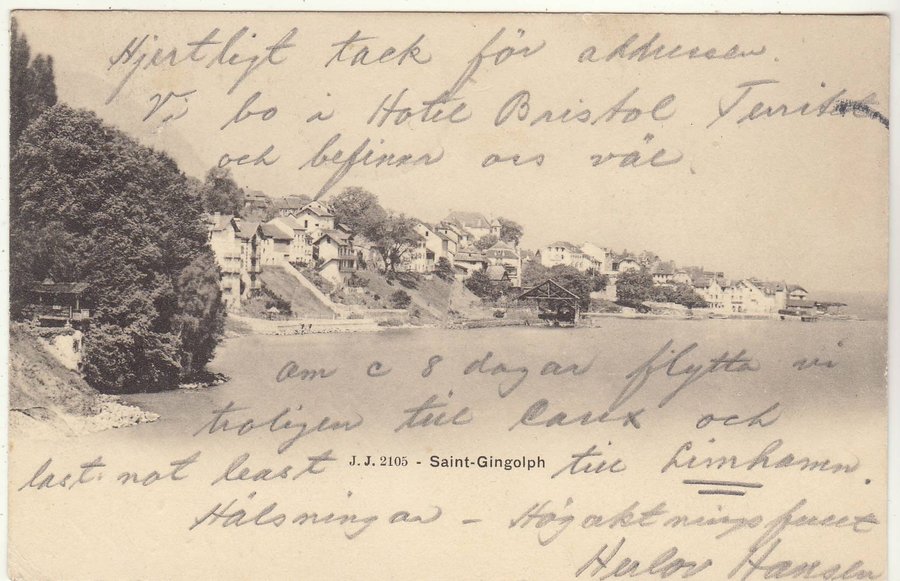 Hjertligt tack för addressen.
Vi bo i Hotel Bristol Territet
och befinner oss väl.
Om c 8 dagar flytta vi
troligen till Caux och
last not least till Limhamn.
J. J. 2105 - Saint-Gingolph
Hälsningar - Högaktningsfullt
Herlov Hansen